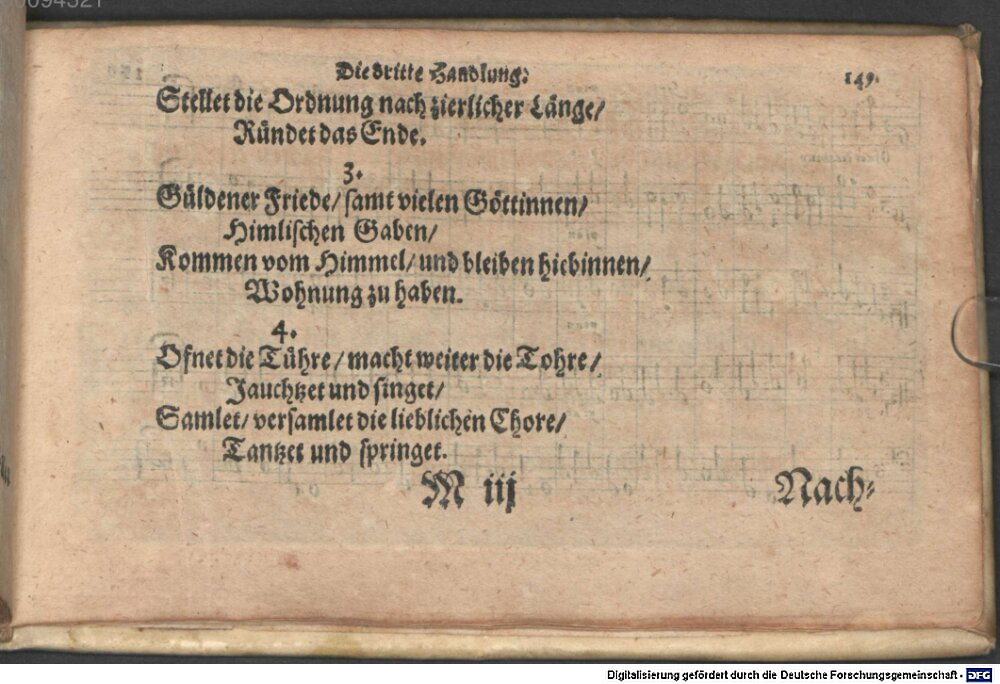 Die dritte Handlung. 149.
Stellet die Ordnung nach zierlicher Länge/
Ründet das Ende.
3.
Güldener Friede/ samt vielen Göttinnen/
Himlischen Gaben/
Kommen vom Himmel/ und bleiben hiebinnen/
Wohnung zu haben.
4.
Ofnet die Tühre/ macht weiter die Tohre/
Jauchtzet und singet/
Samlet/ versamlet die lieblichen Chore/
Tantzet und springet.
M iij Nach-
Digitalisierung gefördert durch die Deutsche Forschungsgemeinschaft - DFG